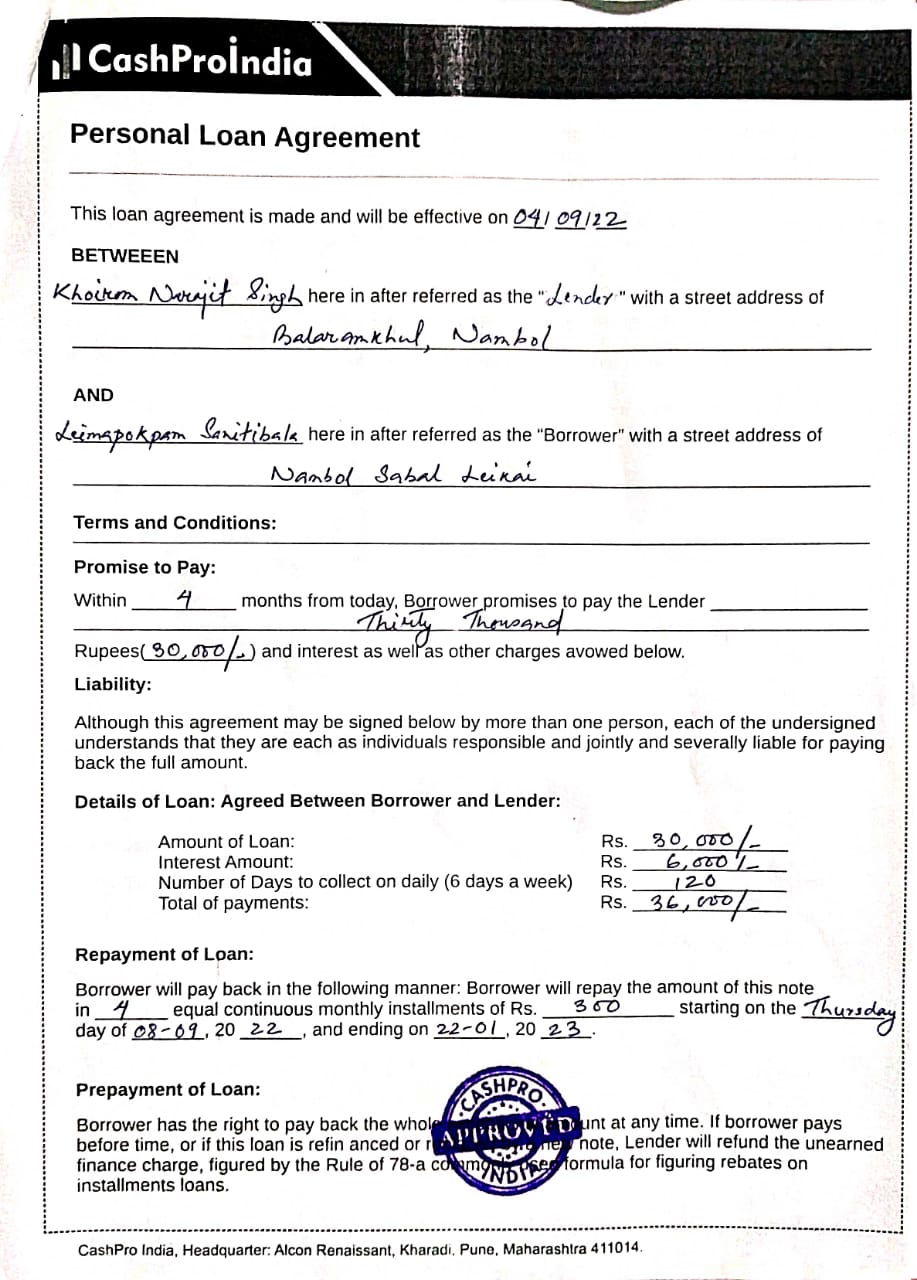 CashProIndia
Personal Loan Agreement
This loan agreement is made and will be effective on 04/09/22
BETWEEEN
Khoirom Norajit Singh here in after referred as the "Lender" with a street address of
Balaramkhul, Nambol
AND
Leimapokpam Sanitibala here in after referred as the “Borrower” with a street address of
Nambol Sabal Leikai
Terms and Conditions:
Promise to Pay:
Within 4 months from today, Borrower promises to pay the Lender
Thirty Thousand
Rupees(30,000/-) and interest as well as other charges avowed below.
Liability:
Although this agreement may be signed below by more than one person, each of the undersigned
understands that they are each as individuals responsible and jointly and severally liable for paying
back the full amount.
Details of Loan: Agreed Between Borrower and Lender:
Amount of Loan: Rs. 30,000/-
Interest Amount: Rs. 6,000/-
Number of Days to collect on daily (6 days a week) Rs. 120
Total of payments: Rs. 36,000/-
Repayment of Loan:
Borrower will pay back in the following manner: Borrower will repay the amount of this note
in 4 equal continuous monthly installments of Rs. 300 starting on the Thursday
day of 08-09, 20 22, and ending on 22-01, 20 23.
Prepayment of Loan:
Borrower has the right to pay back the whole unt at any time. If borrower pays
before time, or if this loan is refin anced or new note, Lender will refund the unearned
finance charge, figured by the Rule of 78-a commonly used formula for figuring rebates on
installments loans.
CASHPRO
APPROVED
INDIA
CashPro India, Headquarter: Alcon Renaissant, Kharadi, Pune, Maharashtra 411014.